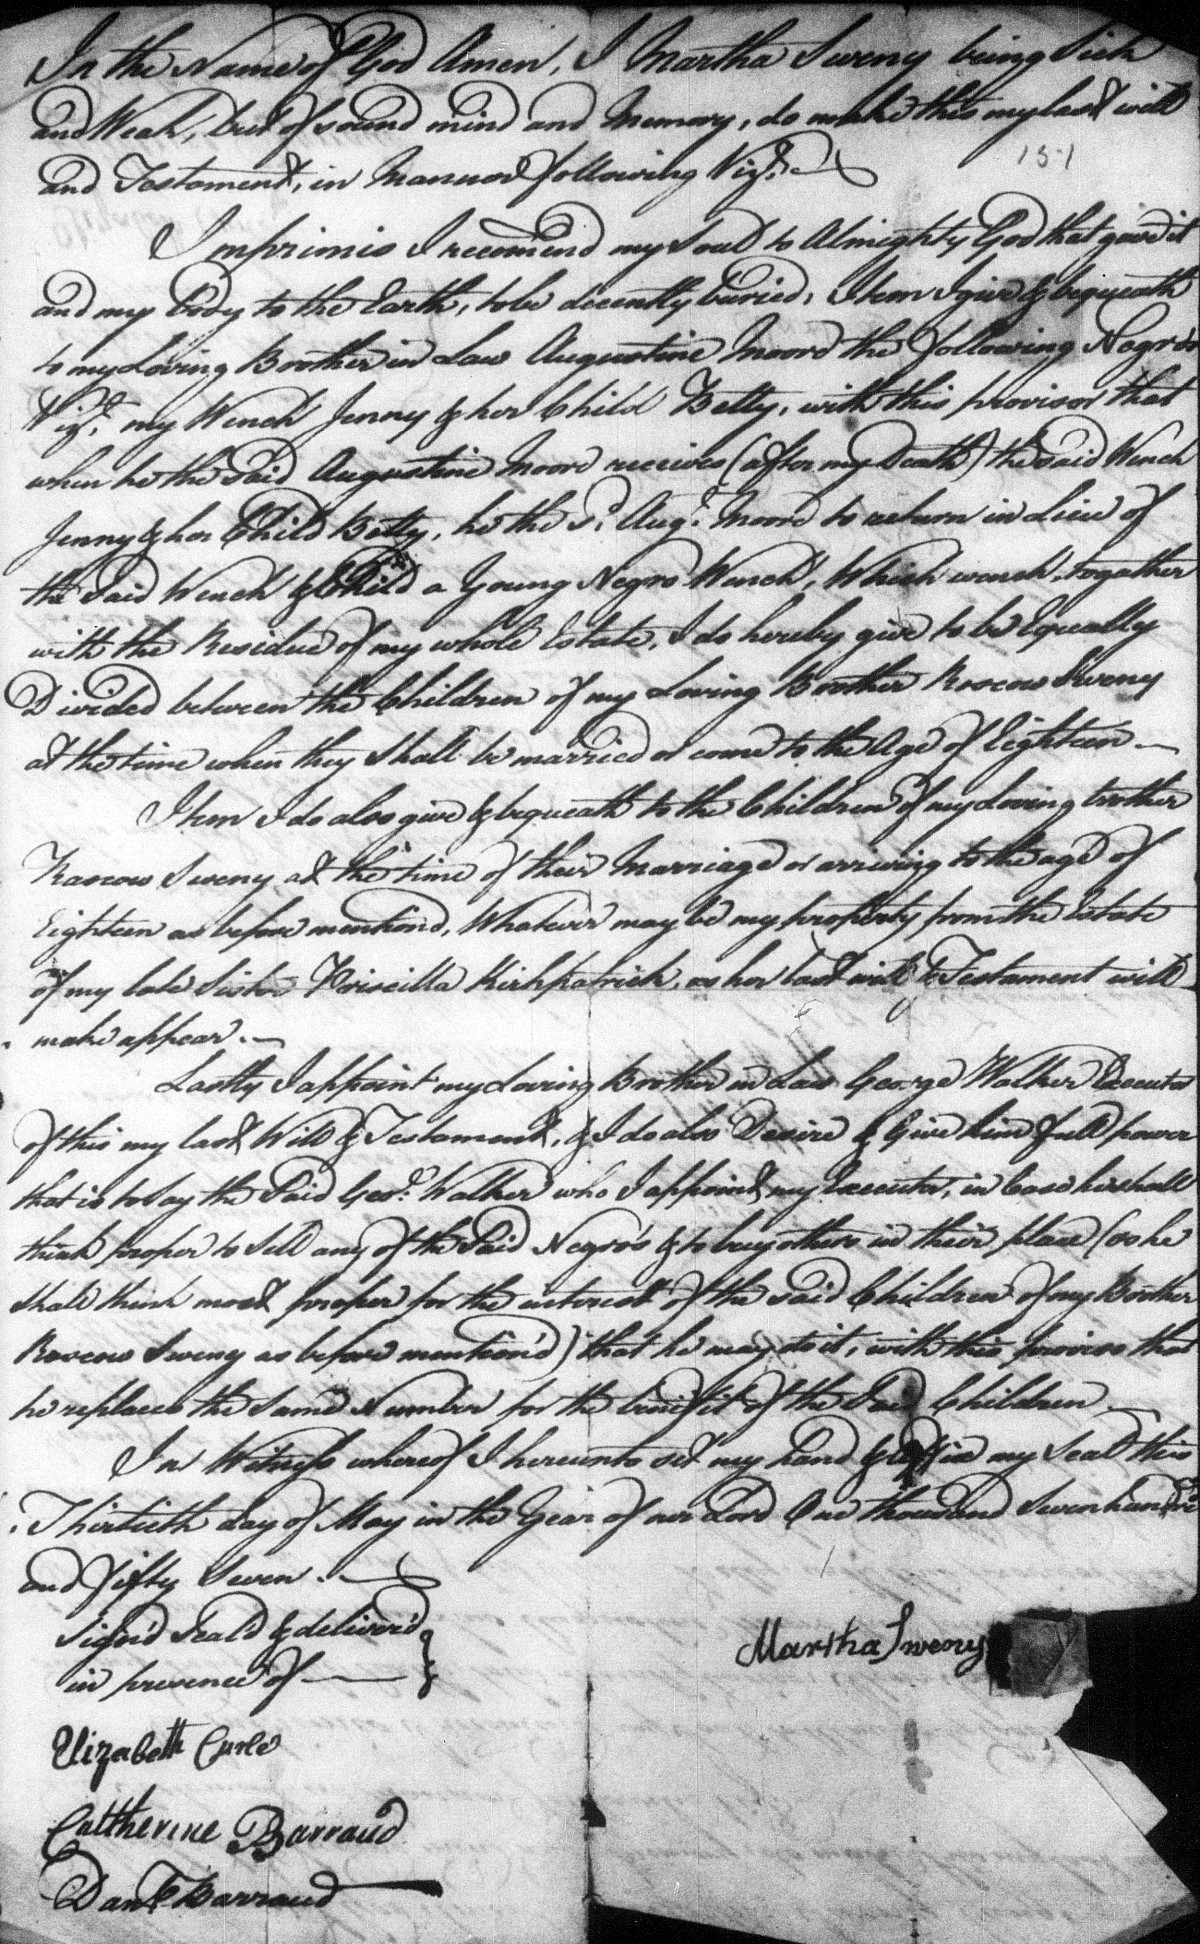 In the Name of God Amen, I Martha Sweny being Sick
and Weak, but of sound mind and Memory, do make this my last will
and Testament, in Manner following Vizt.
151
Imprimis I recomend my Soul to Almighty God that gave it
and my Body to the Earth, to be decently buried, Item I give & bequeath
to my Loving Brother in Law Augustine Moore the following Negros
Vizt. my Wench Jenny & her Child Betty, with this provisor that
when he the Said Augustine Moore receives (after my Death) the said Wench
Jenny & her Child Betty, he the sd. Augt. Moore to return in Lieu of
the Said Wench & Child a Young Negro Wench, Which wench, together
with the Residue of my whole Estate, I do hereby give to be Equally
Divided between the Children of my Loving Brother Roscow Sweny
at the time when they Shall be married or come to the Age of Eighteen
Item I do also give & bequeath to the Children of my Loving brother
Roscow Sweny at the time of their Marriage or arriving to the age of
Eighteen as before mentiond, Whatever may be my property from the Estate
of my late Sister Priscilla Kirkpatrick, as her last will & Testament will
make appear.
Lastly I appoint my Loving Brother in Law George Walker Executor
of this my last Will & Testament, & I do also Desire & Give him full power
that is to Say the Said Geoe. Walker who I appoint my Executor, in Case he shall
think proper to Sell any of the Said Negro's & to buy others in their place (as he
Shall think most proper for the interest of the said Children of my Brother
Roscow Sweny as before mention'd) that he may do it, with this proviso that
he replaces the Same Number for the benifit of the Said Children
In Witness whereof I hereunto set my hand & affix my Seal this
Thirtieth day of May in the Year of our Lord One thousand Seven hundred
and fifty Seven.
Sign'd Seal'd & deliver'd
in presence of
Martha Sweny
Elizabeth Curle
Catherine Barraud
Danl. Barraud